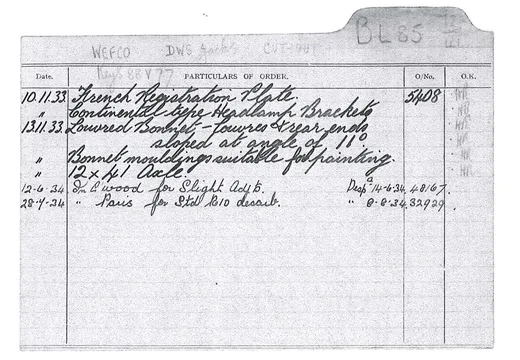 BL85
WEFCO DWS Jacks CUT-OUT
Keys 88V77
Date. PARTICULARS OF ORDER. O/No. O.K.
10.11.33. French Registration Plate. 5408
" Continental type Headlamp Brackets
13.11.33 Louvred Bonnet - louvres & rear ends
sloped at angle of 11°
" Bonnet mouldings suitable for painting.
" 12 x 41 Axle.
12-6-34 In Cwood for Slight Adjts. Desp'd 14-6-34. 48167.
28-7-34 " Paris for Std R10 decarb. " 8-8-34. 32929